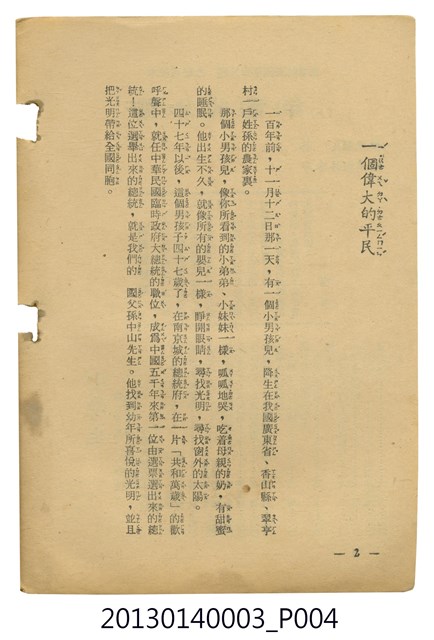 一個偉大的平民
一百年前，十一月十二日那一天，有一個小男孩兒，降生在我國廣東省、香山縣、翠亨
村一戶姓孫的農家裏。
那個小男孩兒，像你所看到的小弟弟、小妹妹一樣，呱呱地哭，吃着母親的奶，有甜蜜
的睡眠。他出生不久，就像所有的嬰兒一樣，睜開眼睛，尋找光明，尋找窗外的太陽。
四十七年以後，這個男孩子四十七歲了，在南京城的總統府，在一片「共和萬歲」的歡
呼聲中，就任中華民國臨時政府大總統的職位，成爲中國五千年來第一位由選票選出來的總
統！這位選舉出來的總統，就是我們的　國父孫中山先生。他找到幼年所喜悅的光明，並且
把光明帶給全國同胞。
— 2 —
20130140003_P004